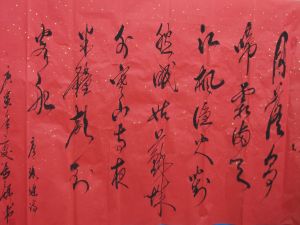 月落烏
啼霜滿天
江楓漁火對
愁眠姑蘇城
外寒山寺夜
半鐘聲到
客船
唐張繼詩
庚寅年夏
書